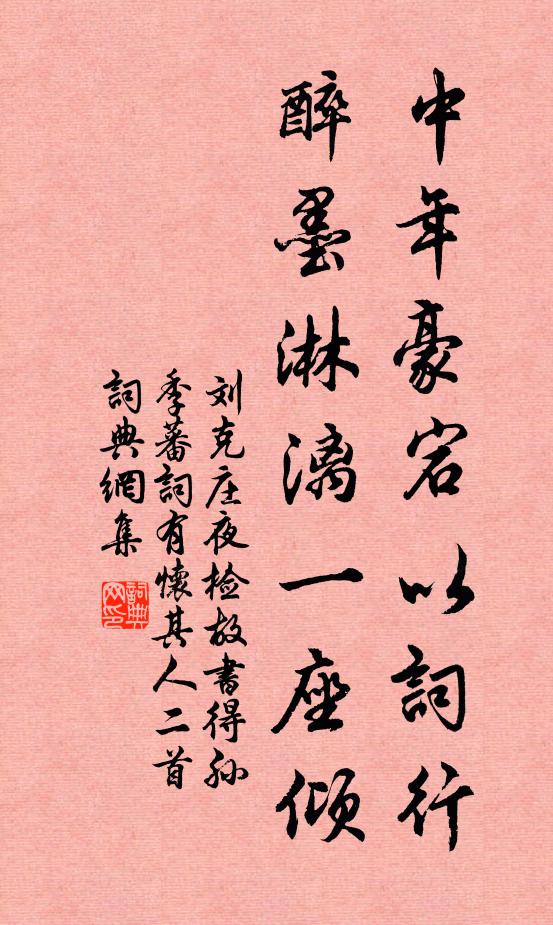 中年豪宕以詞行
醉墨淋漓一座傾
刘克庄夜检故書得孙
季蕃詞有懷其人二首
詞典網集
詞典网印